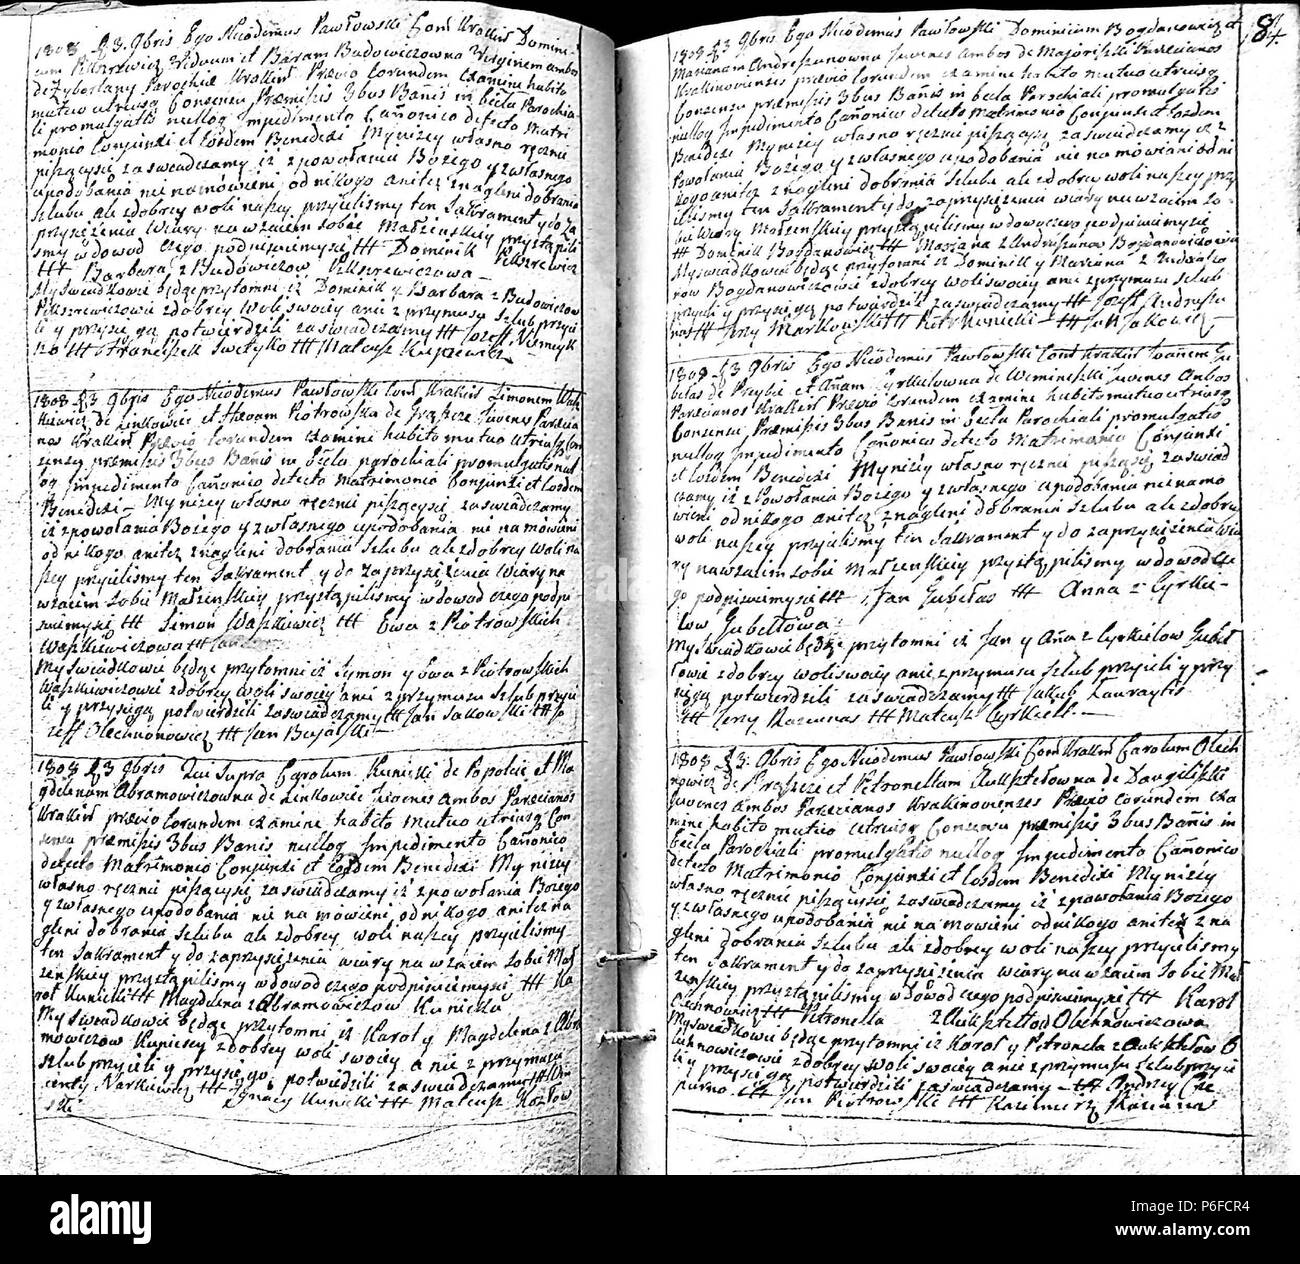 84.
1808 23. 9bris Ego Nicodemus Pawłowski Com Krakiñ Domini-
cum Pilszewicz Viduum et Baram Budowiczowna Virginem ambos
de Zybortany Parochiæ Krakiñ Prævio Corundem Examine habito
mutuo utriusq Consensu Præmissis 3bus Bañis in Eccla Parochia-
li promulgatis nulloq Impedimento Cañonico detecto Matri
monio Conjunxi et Eosdem Benedixi My niżey własno ręcznie
piszącysię zaswiadczamy iż z powołania Bożego y zwłasnego
upodobania nie namówieni od nikogo anitez znagleni dobrania
szlubu ale zdobrey woli naszey przyieliśmy ten Sakrament y do za
przysiężenia Wiary na wzaiem sobie Małżenskiey przystąpili
smy w dowod czego podpisuiemysię +++ Dominik Pilkszewicz
+++ Barbara z Budówiczow Pilkszewiczowa —
My swiadkowie będąc przytomni iż Dominik y Barbara z Budowiczow
Pilkszewiczowie zdobrey woli swoiey ani z przymusu szlub przyie
li y przysięgą potwierdzili zaswiadczamy +++ Jozeff
+++ Franciszek +++ Mateusz
1808 23 9bris Ego Nicodemus Pawłowski Com Krakiñ Simonem Wasz
kiewicz de Linkowce et Hevam Piotrowska de Juvenes Parecia
nos Krakiñ Prævio Corundem Examine habito mutuo utriusq Con
sensu præmissis 3bus Bañis in Eccla parochiali promulgatis null
oq Impedimento Cañonico detecto Matrimonio Conjunxi et Eosdem
Benedixi — My niżey własno ręcznie piszącysię zaswiadczamy
iż z powołania Bożego y z własnego upodobania nie na mówieni
od nikogo anitez znagleni dobrania szlubu ale zdobrey woli na
szey przyieliśmy ten Sakrament y do zaprzysiężenia Wiary na
wzaiem sobie Małżenskiey przystąpiliśmy w dowod czego podpi
suiemysię +++ Simon Waszkiewicz +++ Ewa z Piotrowskich
Waszkiewiczowa +++
My swiadkowie będąc przytomni iż Symon y Ewa z Piotrowskich
Waszkiewiczowie zdobrey woli swoiey ani z przymusu szlub przyie
li y przysięgą potwierdzili zaswiadczamy +++ Jan Sakowski +++ Jo
zeff Olechnonowicz +++ Jan
1808 23 9bris Qui supra Carolum Kunicki de Popolcie et Ma
gdalenam Abramowiczowna de Linkowcie Juvenes ambos Parecianos
Krakiñ prævio Corundem Examine habito mutuo utriusq Con
sensu præmissis 3bus Banis nulloq Impedimento Cañonico
detecto Matrimonio Conjunxi et Eosdem Benedixi My niżey
własno ręcznie piszącysię zaswiadczamy iż z powołania Bożego
y z własnego upodobania nie na mówieni od nikogo anitez zna
gleni dobrania szlubu ale zdobrey woli naszey przyieliśmy
ten Sakrament y do zaprzysiężenia wiary na wzaiem sobie Mał
żenskiey przystąpiliśmy w dowod czego podpisuiemysię +++ Ka
rol Kunicki +++ Magdalena z Abramowiczow Kunicka
My swiadkowie będąc przytomni iż Karol y Magdalena z Abra
mowiczow Kuniccy zdobrey woli swoiey a nie z przymusu
szlub przyieli y przysięgą potwierdzili zaswiadczamy +++ Win
centy Narkiewicz +++ Ignacy Kunicki +++ Mateusz Kozłow
ski
1808 23 9bris Ego Nicodemus Pawłowski Dominicum Bogdanowicz et
Mariannam Andruszanowna Juvenes ambos de Parecianos
Krakinovienses prævio Corundem Examine habito mutuo utriusq
Consensu præmissis 3bus Banis in Eccla Parochiali promulgatis
nulloq Impedimento Cañonico detecto Matrimonio Conjunxi et Eosdem
Benedixi My niżey własno ręcznie piszącysię zaswiadczamy iż z
Powołania Bożego y zwłasnego upodobania nie na mówiani od ni
kogo anitez znagleni dobrania szlubu ale zdobrey woli naszey przy
ieliśmy ten Sakrament y do zaprzysiężenia wiary na wzaiem so
bie Małżenskiey przystąpiliśmy w dowod czego podpisuiemysię
+++ Dominik Bogdanowicz +++ Maryana z Andruszanow Bogdanowiczowa
My swiadkowie będąc przytomni iż Dominik y Maryana z Andrusza
now Bogdanowiczowie zdobrey woli swoiey ani z przymusu szlub
przyieli y przysięgą potwierdzili zaswiadczamy +++ Jozeff Andrusza
nas +++ Jerzy Markowski +++ Piotr Kunicki — +++ Jan Jakowicz
1808 23 9bris Ego Nicodemus Pawłowski Com Krakiñ Joañem Gu
belas de et Añam Cyrkielowna de Juvenes Ambos
Parecianos Krakiñ Prævio Corundem Examine habito mutuo utriusq
Consensu Præmissis 3bus Banis in Eccla Parochiali promulgatis
nulloq Impedimento Canonico detecto Matrimonio Conjunxi
et Eosdem Benedixi My niżey własno ręcznie piszącysię zaswiad
czamy iż z Powołania Bożego y zwłasnego upodobania nie na mo
wieni od nikogo anitez znagleni dobrania szlubu ale zdobrey
woli naszey przyieliśmy ten Sakrament y do zaprzysiężenia Wia
ry na wzaiem sobie Małżenskiey przystąpiliśmy w dowod cze
go podpisuiemysię +++ Jan Gubełas +++ Anna z Cyrkie
low Gubełtowa
My swiadkowie będąc przytomni iż Jan y Aña z Cyrkielow Gubeł
towie zdobrey woli swoiey a nie z przymusu szlub przyieli y przy
sięgą potwierdzili zaswiadczamy +++ Jakub
+++ Jerzy Razmenas +++ Mateusz Cyrkiell —
1808 23. 9bris Ego Nicodemus Pawłowski Com Krakiñ Carolum Olech
nowicz de et Petronellam Auksztełowna de
Juvenes ambos Parecianos Krakinovienses Prævio Corundem Exa
mine habito mutuo utriusq Consensu præmissis 3bus Bañis in
Eccla Parochiali promulgatis nulloq Impedimento Cañonico
detecto Matrimonio Conjunxi et Eosdem Benedixi My niżey
własno ręcznie piszącysię zaswiadczamy iż z powołania Bożego
y z własnego upodobania nie na mówieni od nikogo anitez z na
gleni dobrania szlubu ale zdobrey woli naszey przyieliśmy
ten Sakrament y do zaprzysiężenia wiary na wzaiem sobie Mał
żenskiey przystąpiliśmy w dowod czego podpisuiemysię +++ Karol
Olechnowicz +++ Petronella z Auksztełłow Olechnowiczowa
My swiadkowie będąc przytomni iż Karol y Petronela z Auksztełow O
lechnowiczowie zdobrey woli swoiey a nie z przymusu szlub przyie
li y przysięgą potwierdzili zaswiadczamy — +++ Andrzey Cze
purno +++ Jan Piotrowski +++ Kazimierz
alamy
alamy
Image ID: P6FCR4
www.alamy.com